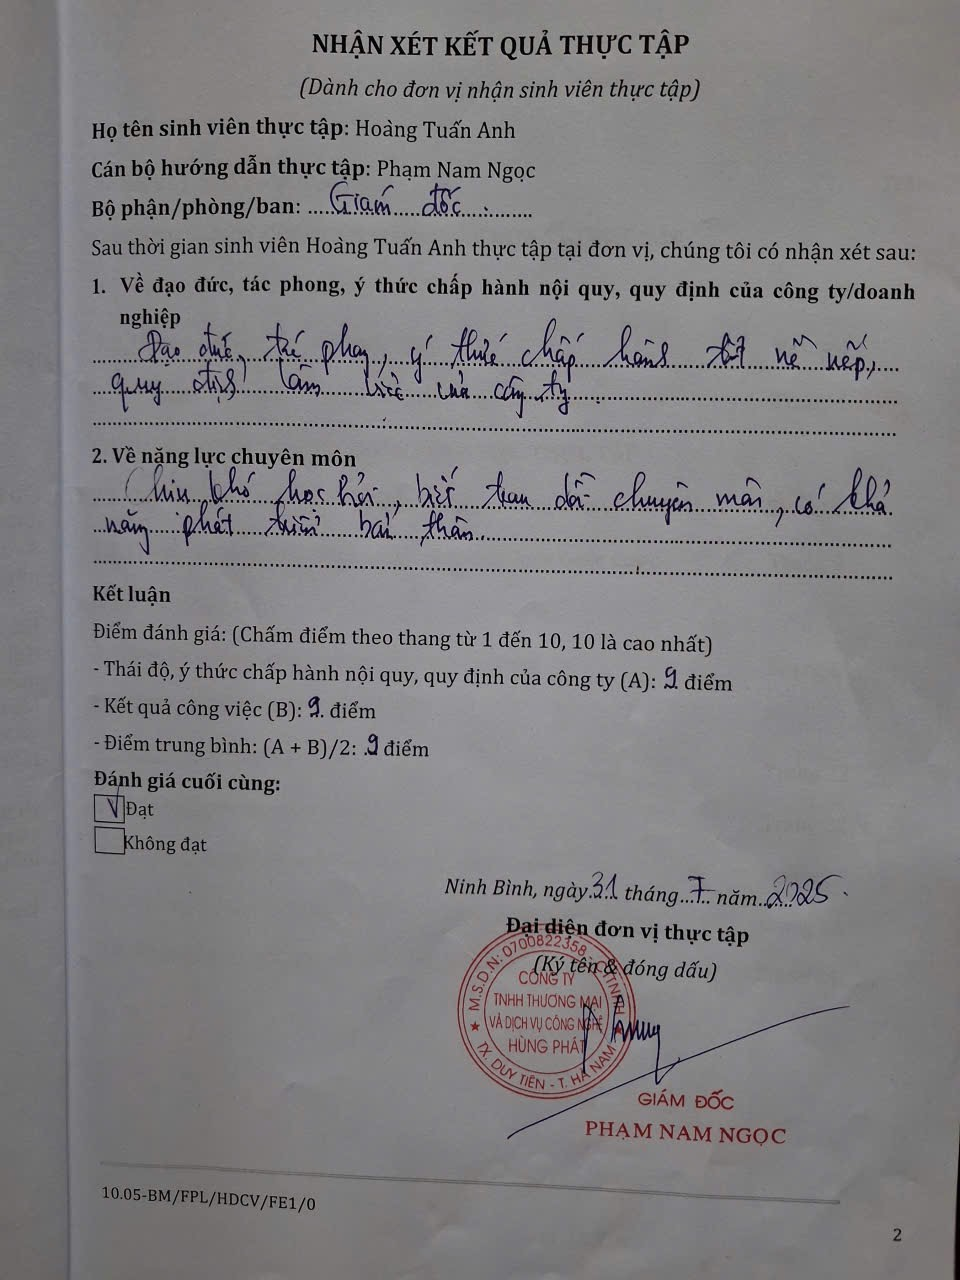 NHẬN XÉT KẾT QUẢ THỰC TẬP
(Dành cho đơn vị nhận sinh viên thực tập)
Họ tên sinh viên thực tập: Hoàng Tuấn Anh
Cán bộ hướng dẫn thực tập: Phạm Nam Ngọc
Bộ phận/phòng/ban: Giám đốc
Sau thời gian sinh viên Hoàng Tuấn Anh thực tập tại đơn vị, chúng tôi có nhận xét sau:
1. Về đạo đức, tác phong, ý thức chấp hành nội quy, quy định của công ty/doanh
nghiệp
Đạo đức, tác phong, ý thức chấp hành tốt nề nếp,
quy định làm việc của công ty
2. Về năng lực chuyên môn
Chịu khó học hỏi, biết trau dồi chuyên môn, có khả
năng phát triển bản thân.
Kết luận
Điểm đánh giá: (Chấm điểm theo thang từ 1 đến 10, 10 là cao nhất)
- Thái độ, ý thức chấp hành nội quy, quy định của công ty (A): 9 điểm
- Kết quả công việc (B): 9 điểm
- Điểm trung bình: (A + B)/2: 9 điểm
Đánh giá cuối cùng:
Đạt
Không đạt
Ninh Bình, ngày 31 tháng 7 năm 2025
Đại diện đơn vị thực tập
(Ký tên & đóng dấu)
M.S.D.N: 0700822358
CÔNG TY
TNHH THƯƠNG MẠI
VÀ DỊCH VỤ CÔNG NGHỆ
HÙNG PHÁT
TX. DUY TIÊN - T. HÀ NAM
GIÁM ĐỐC
PHẠM NAM NGỌC
10.05-BM/FPL/HDCV/FE1/0
2